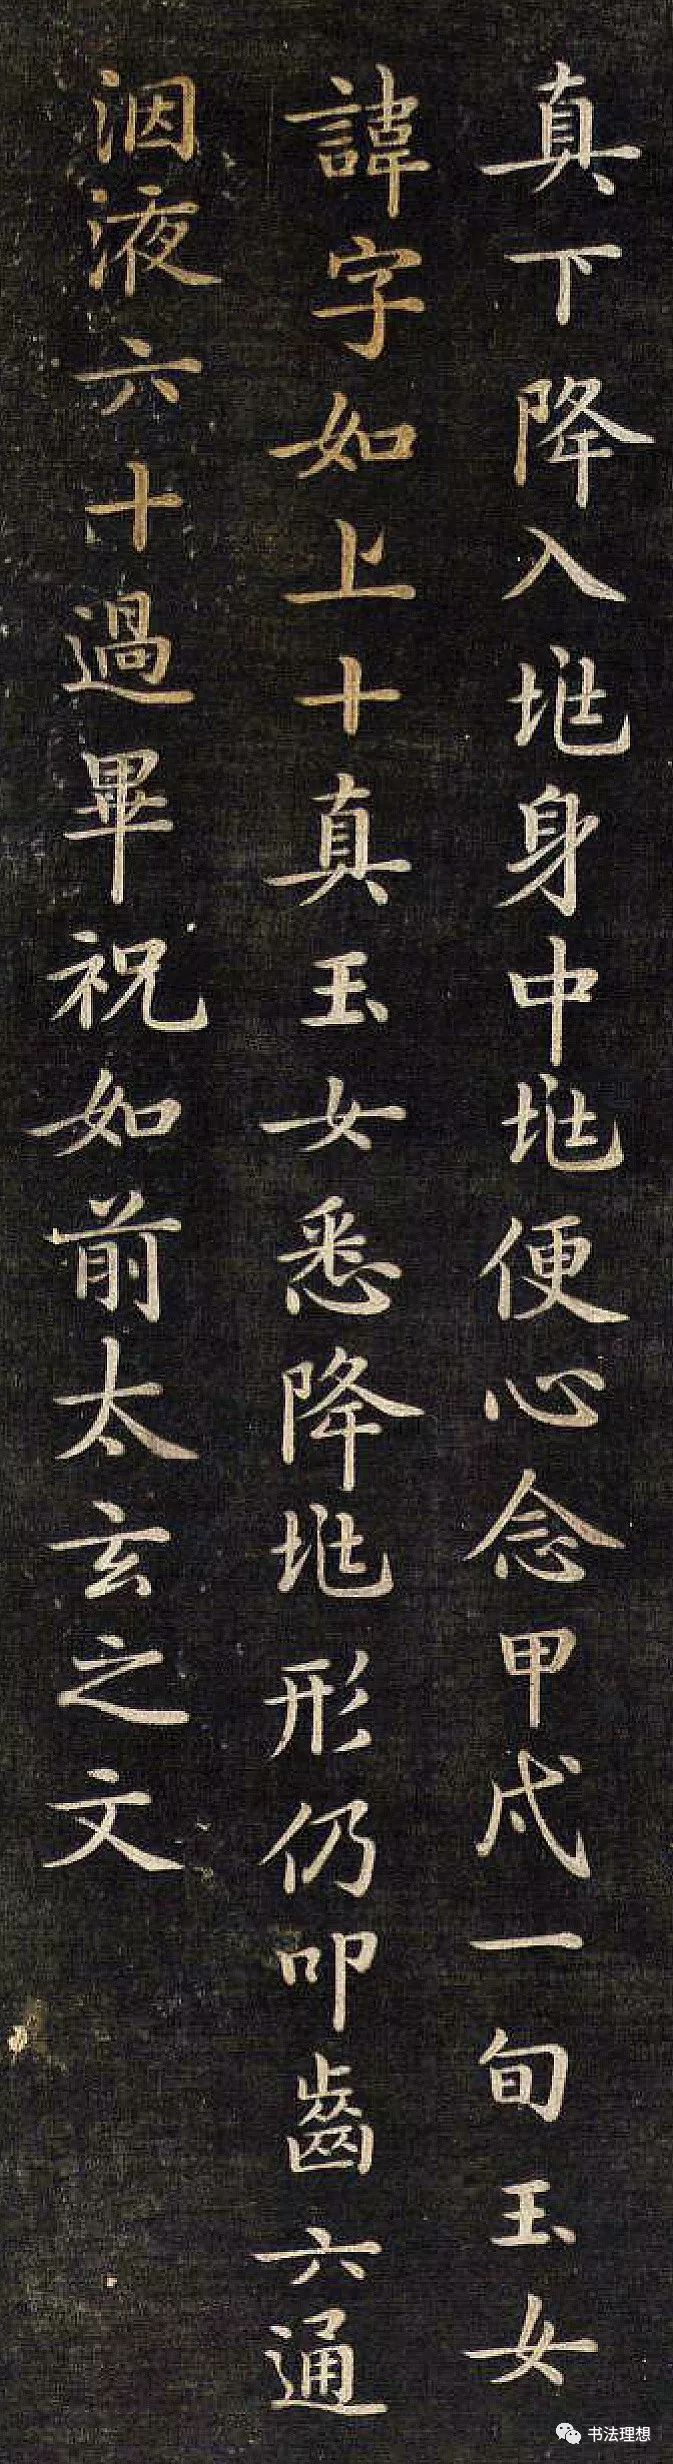 真下降入垗身中垗便心念甲戌一旬玉女
諱字如上十真玉女悉降垗形仍叩齒六通
洇液六十過畢祝如前太玄之文
书法理想